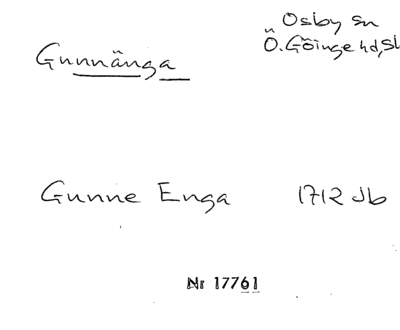 Osby sn
Gunnänga
Ö. Göinge hd, Sk
Gunne Enga 1712 Jb
Nr 17761